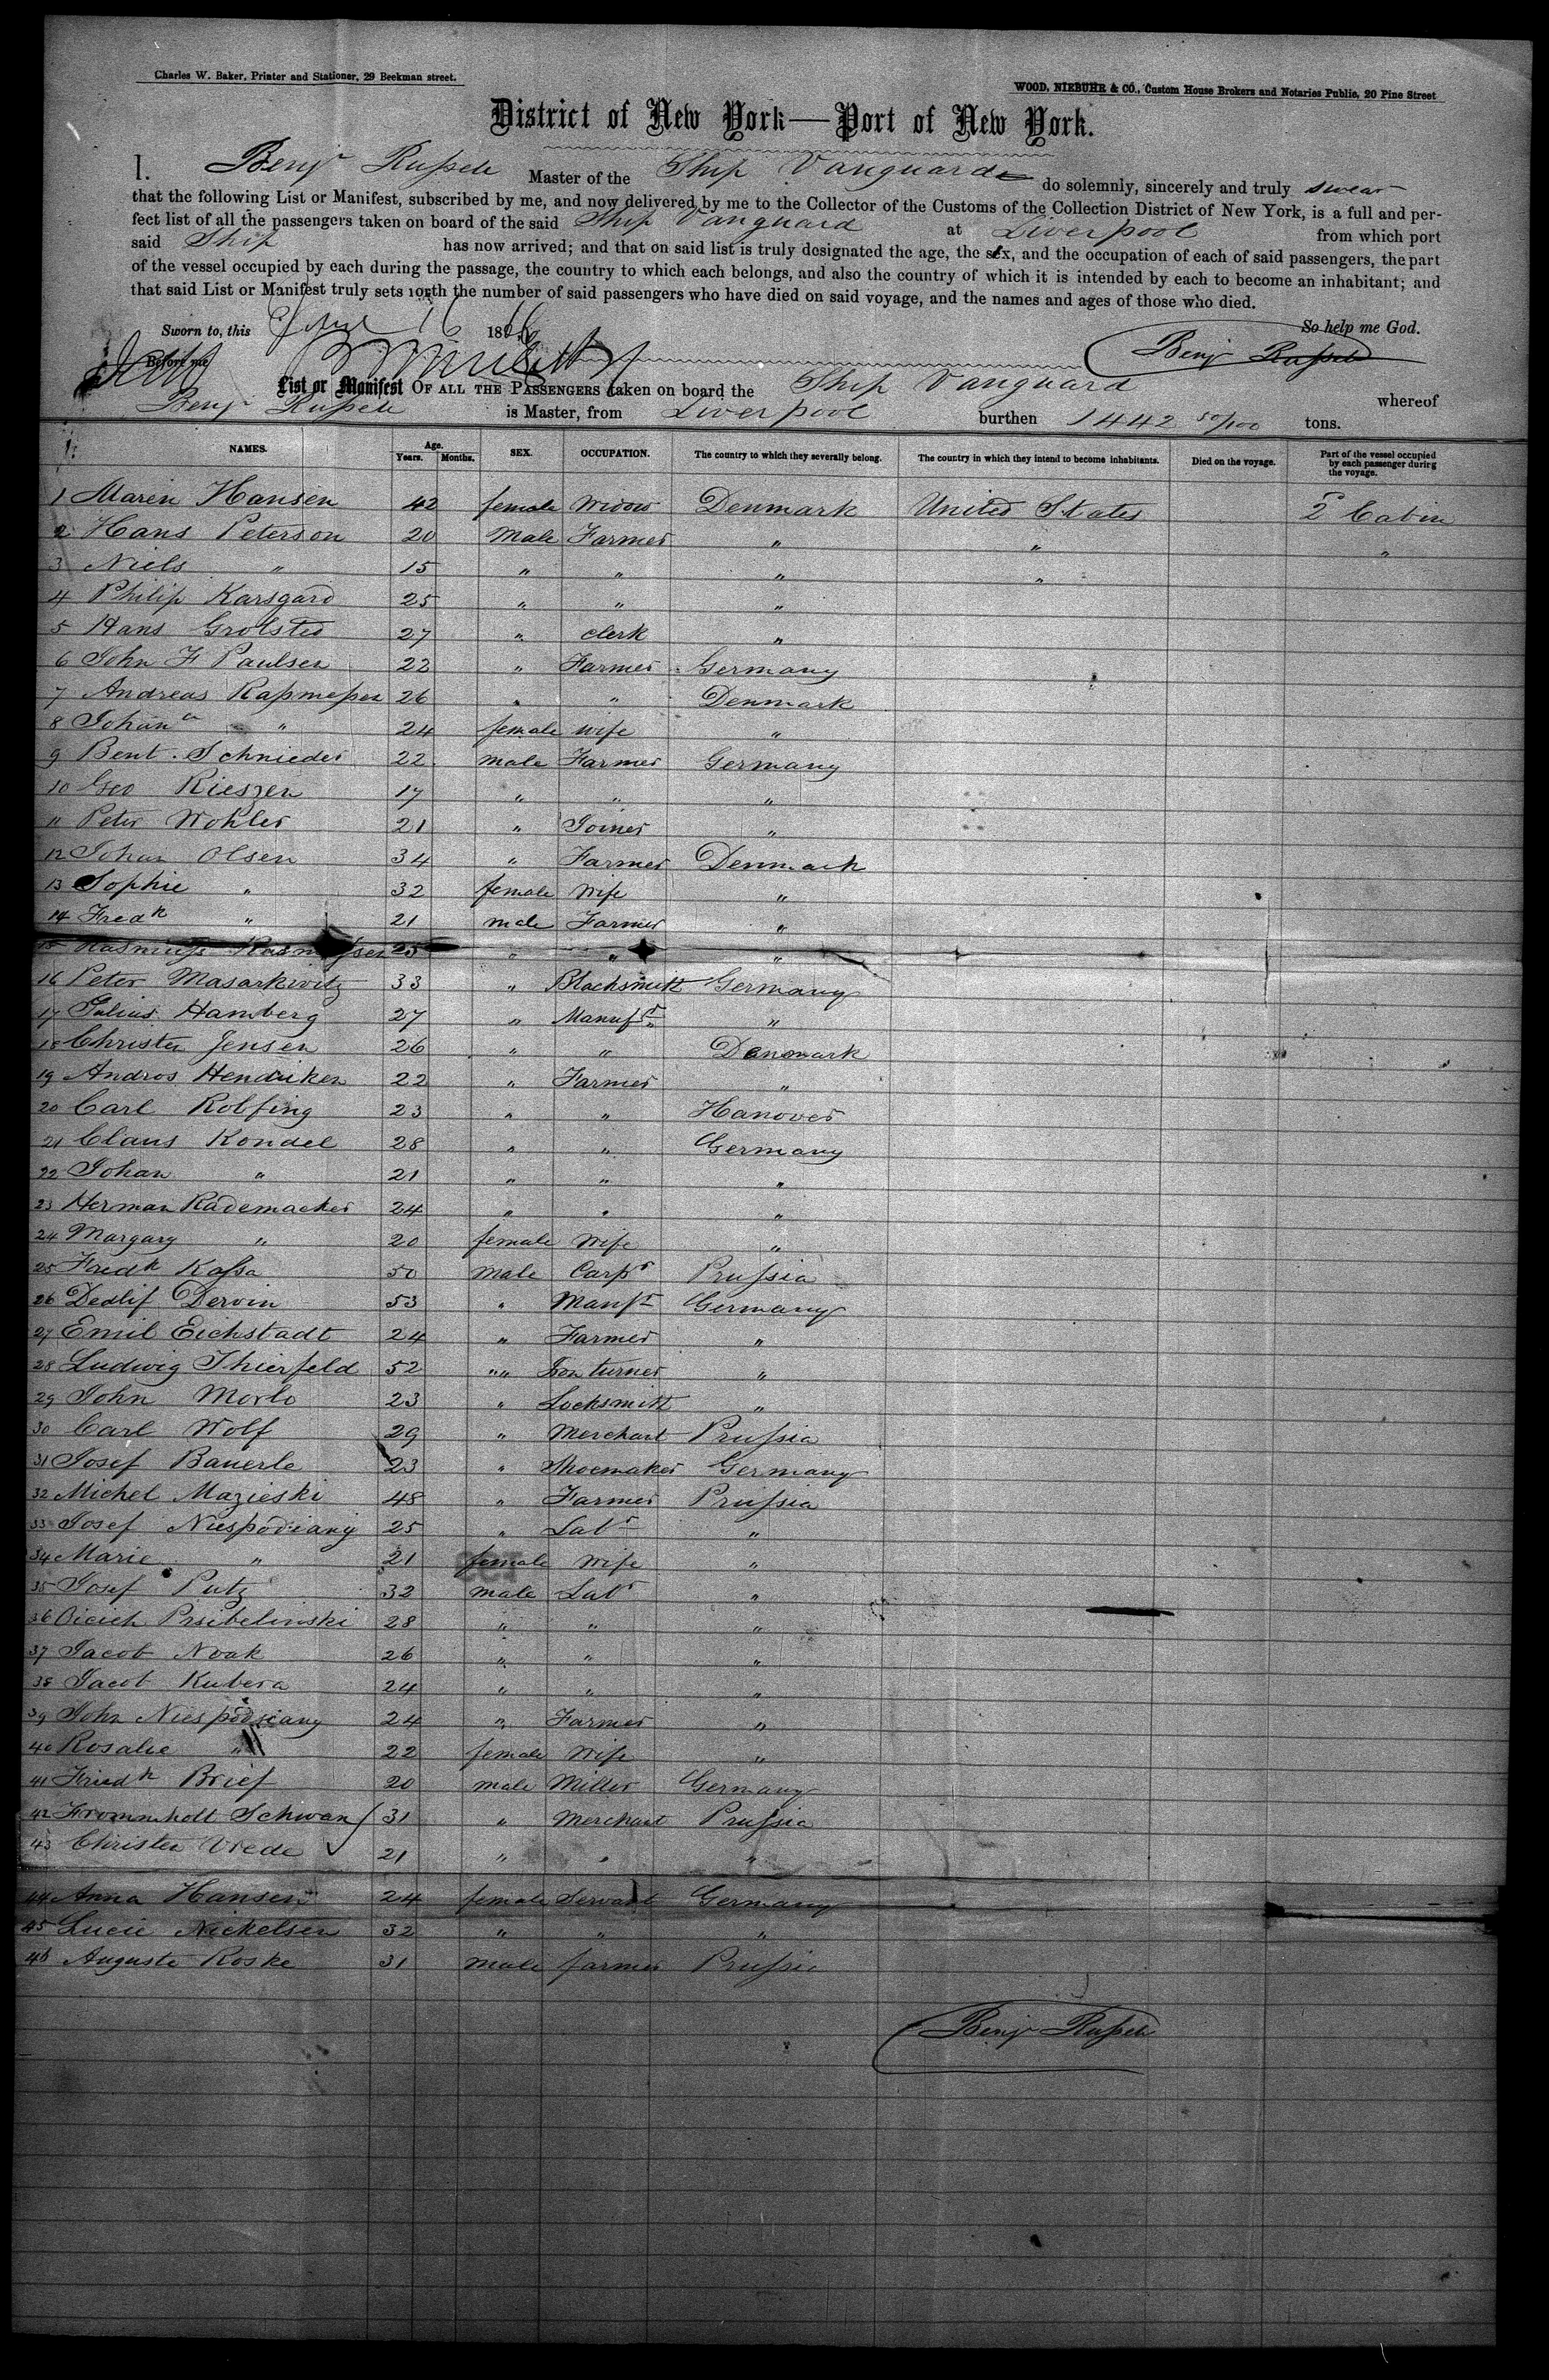 Charles W. Baker, Printer and Stationer, 29 Beekman street.
WOOD, NIEBUHR & CO., Custom House Brokers and Notaries Public, 20 Pine Street
District of New York—Port of New York.
I. Benj Russell Master of the Ship Vanguard do solemnly, sincerely and truly swear
that the following List or Manifest, subscribed by me, and now delivered by me to the Collector of the Customs of the Collection District of New York, is a full and per-
fect list of all the passengers taken on board of the said Ship Vanguard at Liverpool from which port
said Ship has now arrived; and that on said list is truly designated the age, the sex, and the occupation of each of said passengers, the part
of the vessel occupied by each during the passage, the country to which each belongs, and also the country of which it is intended by each to become an inhabitant; and
that said List or Manifest truly sets forth the number of said passengers who have died on said voyage, and the names and ages of those who died.
Sworn to, this June 16 1866 So help me God.
Before me Benj Russell
List or Manifest OF ALL THE PASSENGERS taken on board the Ship Vanguard whereof
Benj Russell is Master, from Liverpool burthen 1442 50/100 tons.
NAMES. Age. Years. Months. SEX. OCCUPATION. The country to which they severally belong. The country in which they intend to become inhabitants. Died on the voyage. Part of the vessel occupied by each passenger during the voyage.
1 Maren Hansen 42 female Widow Denmark United States 2 Cabin
2 Hans Peterson 20 Male Farmer " " "
3 Niels " 15 " " " "
4 Philip Karsgard 25 " " "
5 Hans Grolsted 27 " clerk "
6 John F Paulsen 22 " Farmer Germany
7 Andreas Rasmessen 26 " " Denmark
8 Johana " 24 female wife "
9 Bent. Schnieder 22 male Farmer Germany
10 Geo Rieszen 17 " " "
11 Peter Wohler 21 " Joiner "
12 Johan Olsen 34 " Farmer Denmark
13 Sophie " 32 female Wife "
14 Fredk " 21 male Farmer "
15 Rasmuss Rasmussen 25 " " "
16 Peter Masarkwitz 33 " Blacksmith Germany
17 Julius Hamberg 27 " Manufr "
18 Christen Jensen 26 " " Denmark
19 Andros Hendriken 22 " Farmer "
20 Carl Rolfing 23 " " Hanover
21 Claus Kondel 28 " " Germany
22 Johan " 21 " " "
23 Herman Rademacker 24 " " "
24 Margary " 20 female Wife "
25 Fredk Kassa 50 male Carpr Prussia
26 Dedlif Dervin 53 " Manfr Germany
27 Emil Eichstadt 24 " Farmer "
28 Ludwig Thierfeld 52 " " Iron turner "
29 John Morlo 23 " Locksmith "
30 Carl Wolf 29 " Merchant Prussia
31 Josef Bauerle 23 " Shoemaker Germany
32 Michel Mazieski 48 " Farmer Prussia
33 Josef Niespodiany 25 " Labr "
34 Marie " 21 female Wife "
35 Josef Putz 32 male Labr "
36 Prsibelinski 28 " " "
37 Jacob Noak 26 " " "
38 Jacob Kubera 24 " " "
39 John Niespodsiany 24 " Farmer "
40 Rosalie " 22 female Wife "
41 Friedk Brief 20 male Miller Germany
42 Frommholt Schwan 31 " Merchant Prussia
43 Christen Vrede 21 " " "
44 Anna Hansen 24 female Servant Germany
45 Lucie Nickelsen 32 " " "
46 Auguste Roske 31 male farmer Prussia
Benj Russell